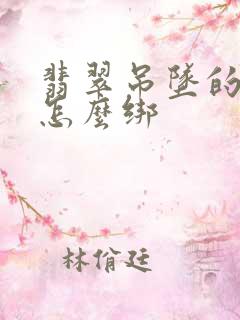 翡翠吊墜的
怎麼綁
林俏廷